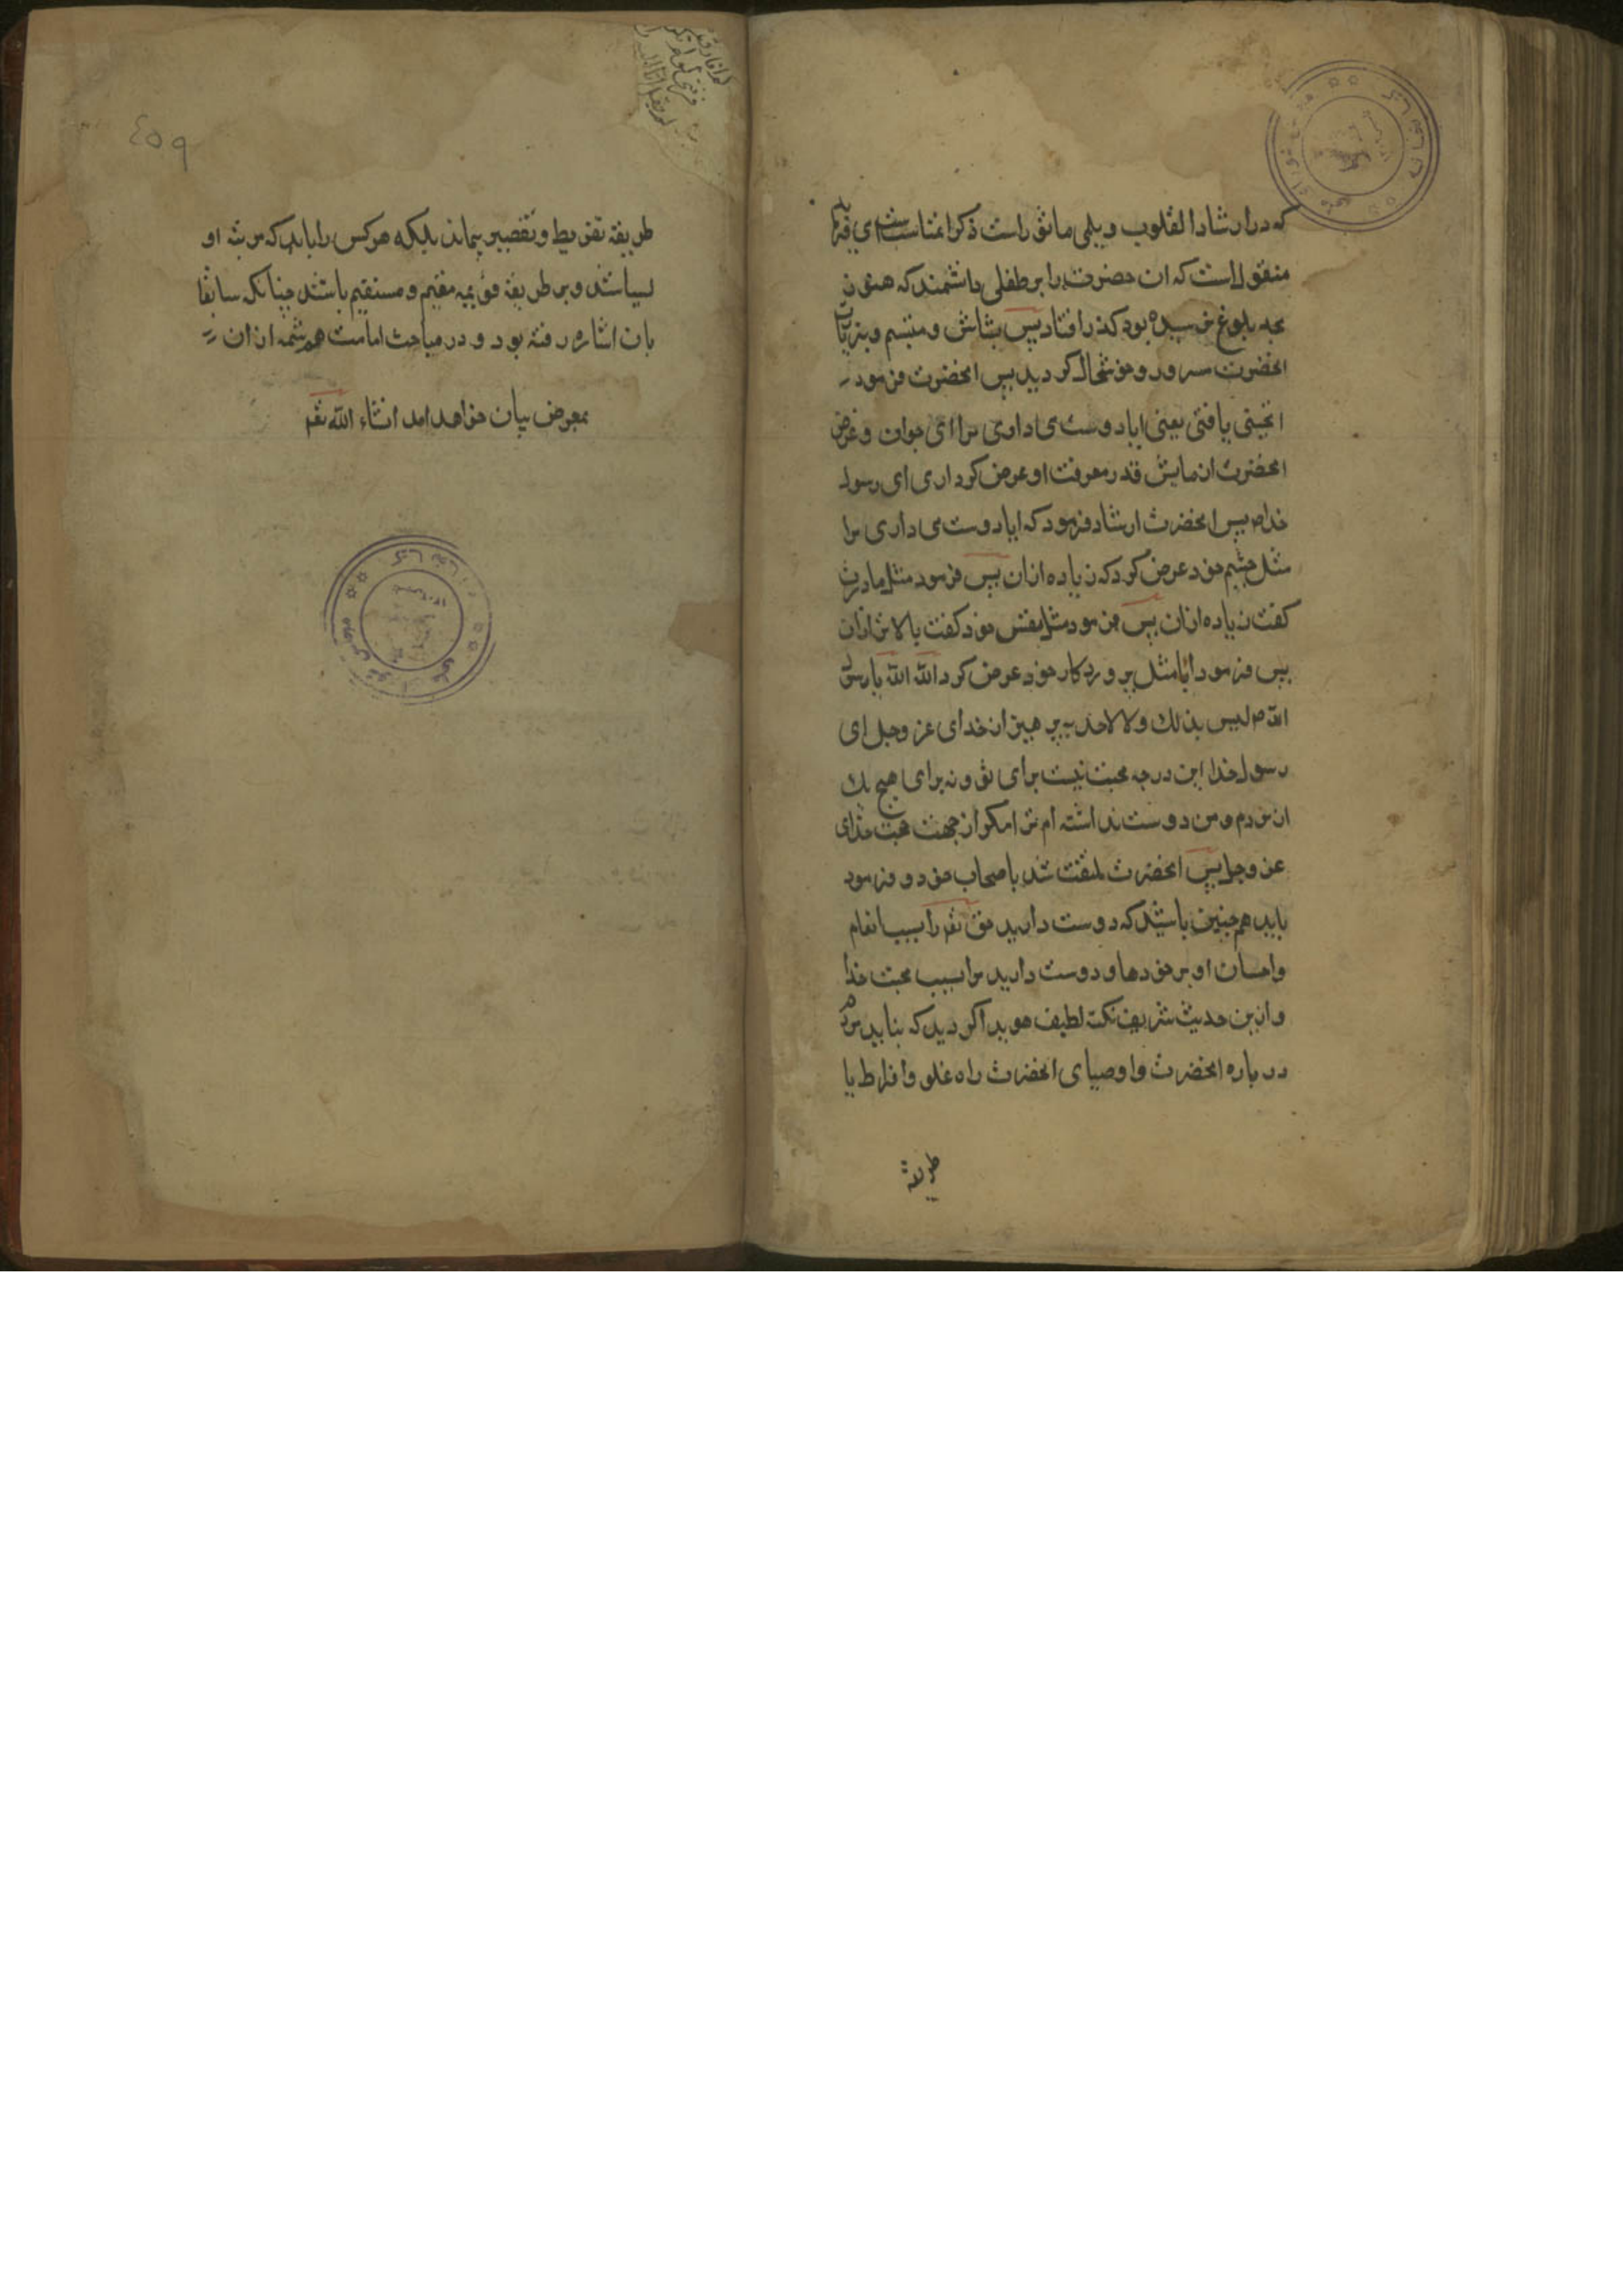 که در ارشاد القلوب دیلمی ماثور است ذکر
منقول است که ان حضرت را بر طفلی دانشمند که هنوز
بحد بلوغ نرسیده بود کذر افتاد پس بشاش و متبسم و
انحضرت مسرور و خوشحال کردید پس انحضرت فرمود
اتحبنی یا فتی یعنی ایا دوست می داری مرا ای جوان و غرض
انحضرت ازمایش قدر معرفت او عرض کرد اری ای رسول
خدا ص پس انحضرت ارشاد فرمود که ایا دوست می داری مرا
مثل چشم خود عرض کرد که زیاده ازان پس فرمود مثل مادرت
کفت زیاده ازان پس فرمود مثل نفس خود کفت بالاتر ازان
پس فرمود ایا مثل پروردکار خود عرض کرد الله الله یا رسول
الله ص لیس بذلک ولا لاحد بپرهیز از خدای عز و جل ای
رسول خدا این درجه محبت نیست برای تو و نه برای هیچ یک
از مردم و من دوست نداشته ام ترا مکر از جهت محبت خدای
عز و جل پس انحضرت ملتفت شد باصحاب خود و فرمود
باید همچنین باشید که دوست دارید حق تعم را بسبب انعام
و احسان او بر خودها و دوست دارید مرا بسبب محبت خدا
و ازین حدیث شریف نکته لطیف هویدا کردید که نباید مردم
در باره انحضرت و اوصیای انحضرت راه غلو و افراط یا
طریقه
٤٥٩
طریقه تفریط و تقصیر بیماند بلکه هرکس را باید که مرتبه او
بشناسد و بر طریقه قویمه مقیم و مستقیم باشد چنانکه سابقا
بان اشاره رفته بود و در مباحث امامت هم شمه ازان
بمعرض بیان خواهد امد انشاء الله تعم